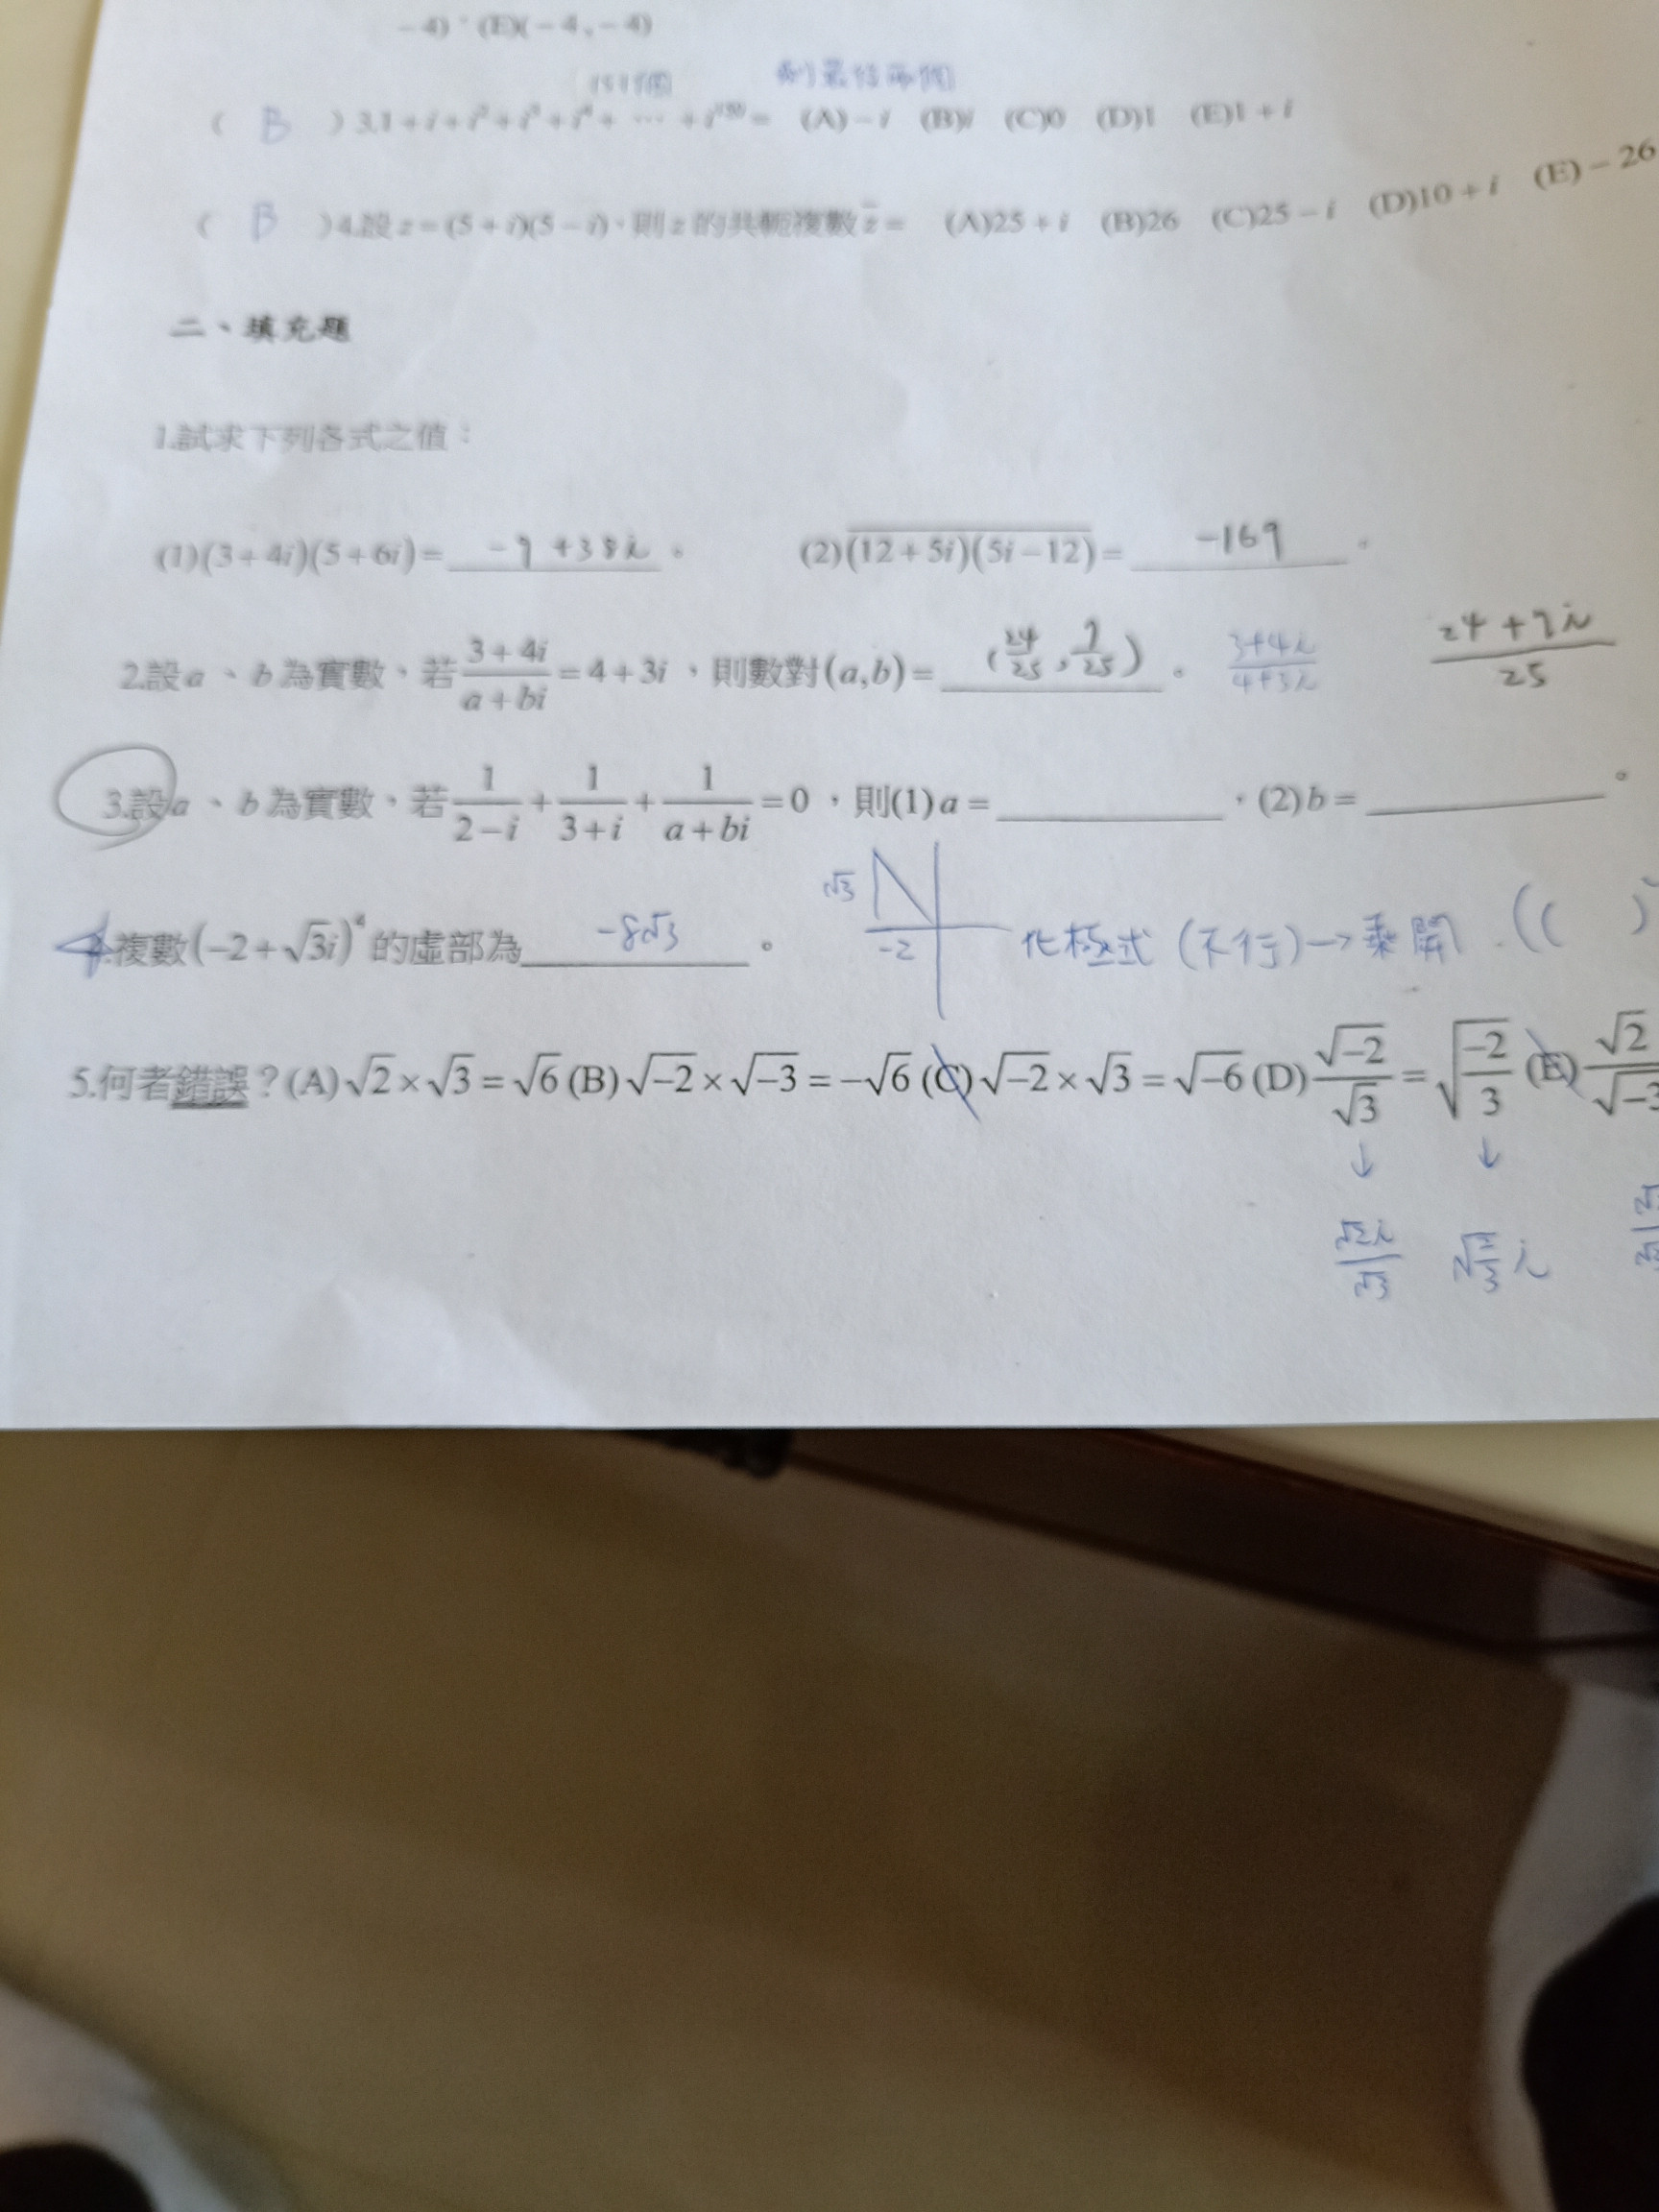 −4)、(E)(−4,−4)
151個 剩最後兩個
( B ) 3.1+i+i²+i³+i⁴+ ⋯ +i¹⁵⁰= (A)−i (B)i (C)0 (D)1 (E)1+i
( B )4.設z=(5+i)(5−i)、則z的共軛複數z̄= (A)25+i (B)26 (C)25−i (D)10+i (E)−26
二、填充題
1.試求下列各式之值：
(1)(3+4i)(5+6i)= -9+38i 。 (2)\overline{(12+5i)(5i−12)}= -169 。
2.設a、b為實數、若\frac{3+4i}{a+bi}=4+3i，則數對(a,b)= (\frac{24}{25},\frac{7}{25}) 。 \frac{3+4i}{4+3i} \frac{24+7i}{25}
3.設a、b為實數、若\frac{1}{2−i}+\frac{1}{3+i}+\frac{1}{a+bi}=0，則(1)a=＿＿＿，(2)b=＿＿＿。
4.複數(−2+√3i)⁴的虛部為 -8√3 。 √3 -2 化極式(不行)→乘開.(( )
5.何者錯誤？(A)√2×√3=√6(B)√−2×√−3=−√6(C)√−2×√3=√−6(D)\frac{√−2}{√3}=√\frac{−2}{3}(E)\frac{√2}{√−3}
↓ ↓
\frac{√2i}{√3} √\frac{2}{3}i